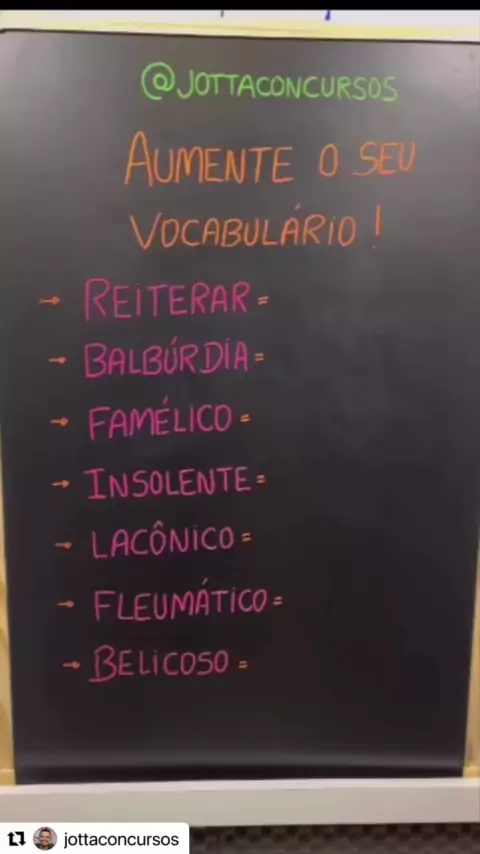 @JOTTACONCURSOS
AUMENTE O SEU
VOCABULÁRIO!
→ REITERAR =
→ BALBÚRDIA =
→ FAMÉLICO =
→ INSOLENTE =
→ LACÔNICO =
→ FLEUMÁTICO =
→ BELICOSO =
jottaconcursos